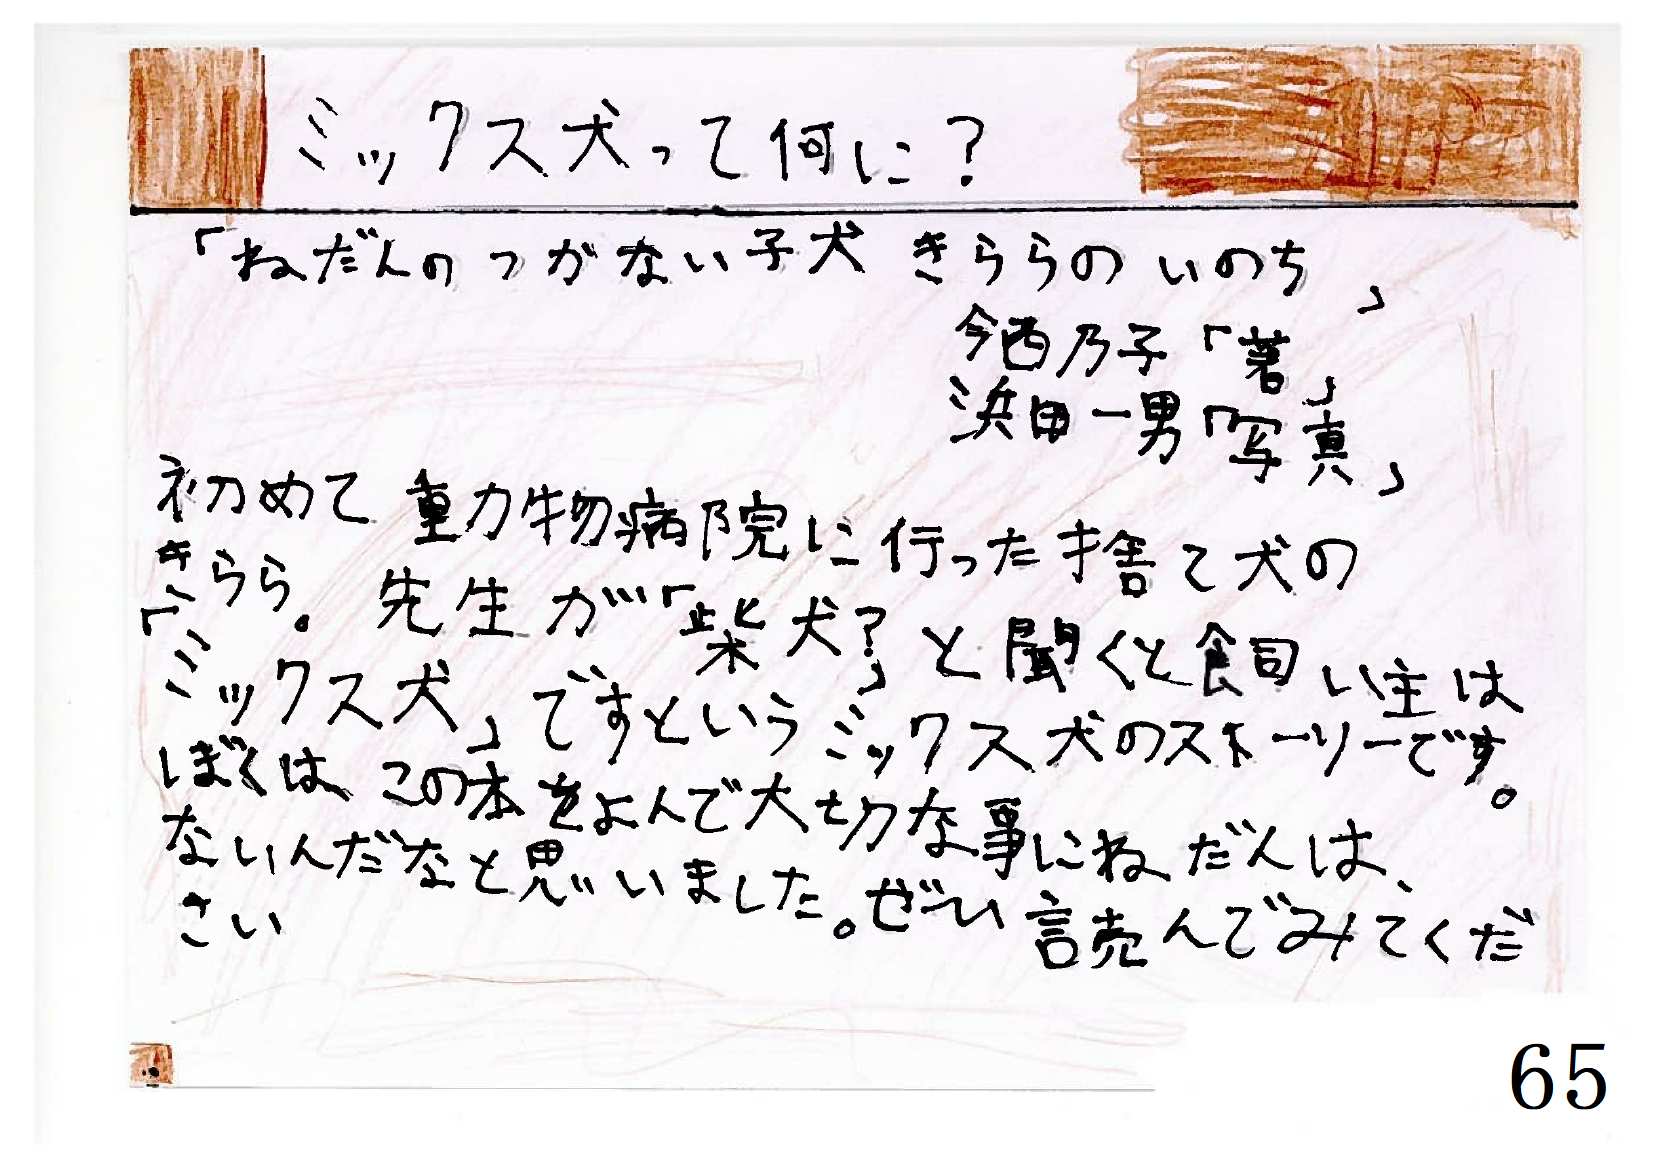 ミックス犬って何に?
「ねだんのつがない子犬 きららのいのち」
今西乃子「著」
浜田一男「写真」
初めて動物病院に行った捨て犬の
きらら。先生が「柴犬?」と聞くと飼い主は
「ミックス犬」ですというミックス犬のストーリーです。
ぼくは、この本をよんで大切な事にねだんは、
ないんだなと思いました。ぜひ読んでみてくだ
さい
65